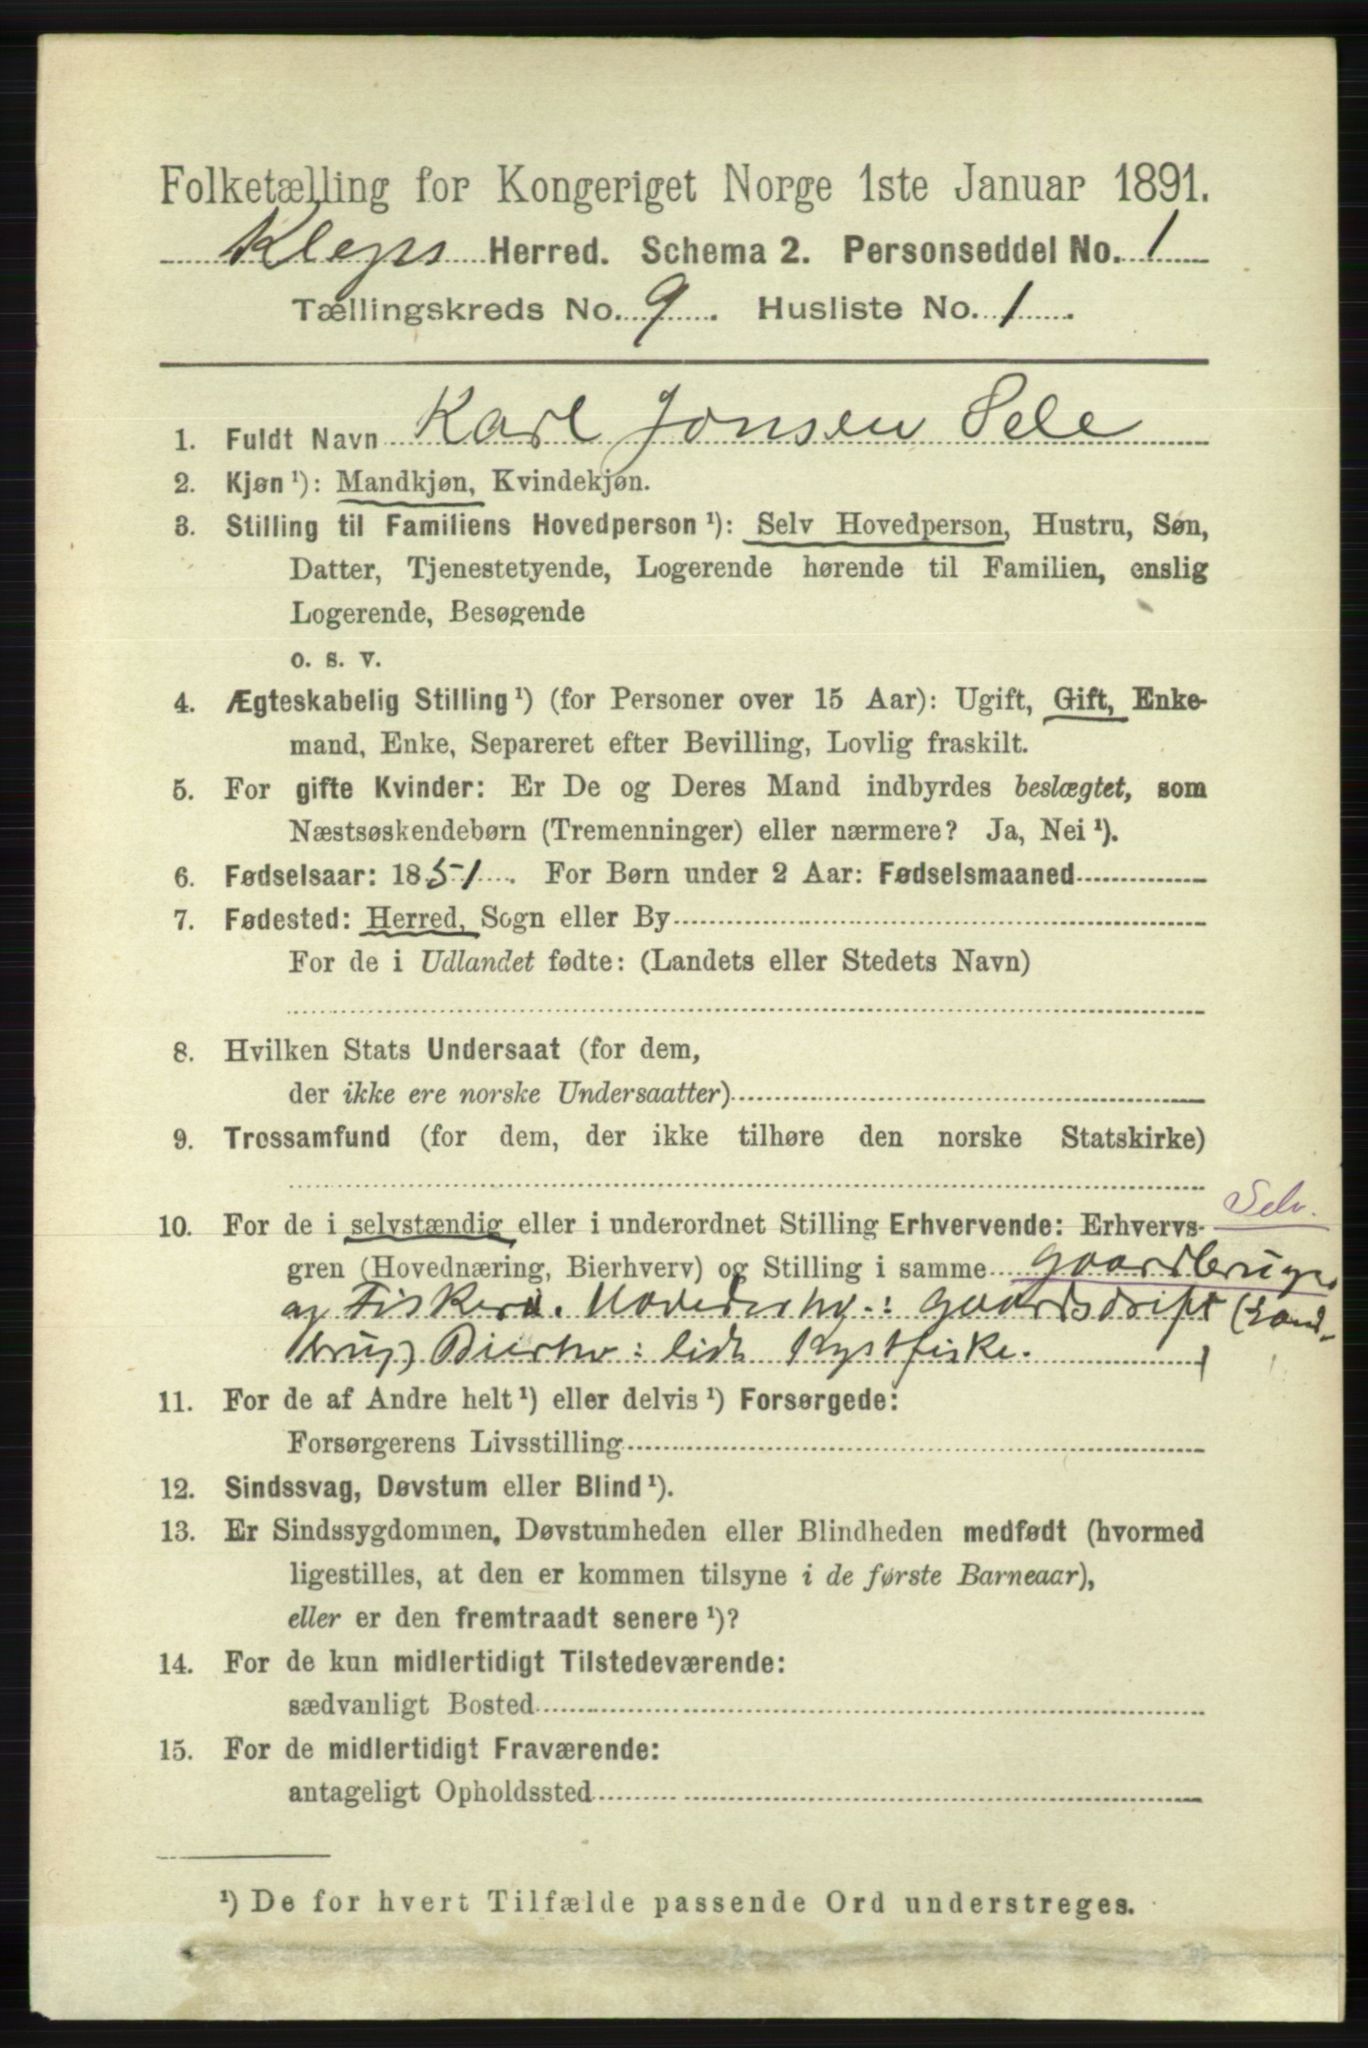 Folketælling for Kongeriget Norge 1ste Januar 1891.
Klepp Herred. Schema 2. Personseddel No. 1
Tællingskreds No. 9. Husliste No. 1.
1. Fuldt Navn Karl Jonsen Sele
2. Kjøn ¹): Mandkjøn, Kvindekjøn.
3. Stilling til Familiens Hovedperson ¹): Selv Hovedperson, Hustru, Søn,
Datter, Tjenestetyende, Logerende hørende til Familien, enslig
Logerende, Besøgende
o. s. v.
4. Ægteskabelig Stilling ¹) (for Personer over 15 Aar): Ugift, Gift, Enke-
mand, Enke, Separeret efter Bevilling, Lovlig fraskilt.
5. For gifte Kvinder: Er De og Deres Mand indbyrdes beslægtet, som
Næstsøskendebørn (Tremenninger) eller nærmere? Ja, Nei ¹).
6. Fødselsaar: 1851. For Børn under 2 Aar: Fødselsmaaned
7. Fødested: Herred, Sogn eller By
For de i Udlandet fødte: (Landets eller Stedets Navn)
8. Hvilken Stats Undersaat (for dem,
der ikke ere norske Undersaatter)
9. Trossamfund (for dem, der ikke tilhøre den norske Statskirke)
Selv.
10. For de i selvstændig eller i underordnet Stilling Erhvervende: Erhvervs-
gren (Hovednæring, Bierhverv) og Stilling i samme gaardbruger
og Fisker. Hovederhv.: Gaardsdrift (Land-
brug) Bierhv: lidt Kystfiske.
11. For de af Andre helt ¹) eller delvis ¹) Forsørgede:
Forsørgerens Livsstilling
12. Sindssvag, Døvstum eller Blind ¹).
13. Er Sindssygdommen, Døvstumheden eller Blindheden medfødt (hvormed
ligestilles, at den er kommen tilsyne i de første Barneaar),
eller er den fremtraadt senere ¹)?
14. For de kun midlertidigt Tilstedeværende:
sædvanligt Bosted
15. For de midlertidigt Fraværende:
antageligt Opholdssted
¹) De for hvert Tilfælde passende Ord understreges.